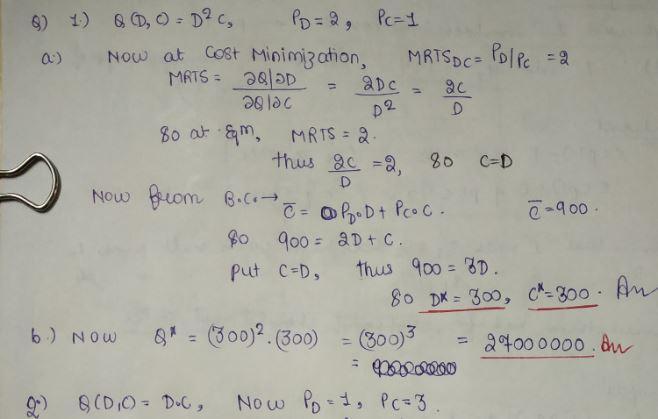 Q) 1.) Q(D,C) = D²C, P_D = 2, P_C = 1
a.) Now at Cost Minimization, MRTS_DC = P_D/P_C = 2
MRTS = ∂Q/∂D / ∂Q/∂C = 2DC / D² = 2C / D
So at Eqm, MRTS = 2.
thus 2C/D = 2, So C=D
Now from B.C. → C̄ = P_D.D + P_C.C. C̄ = 900.
So 900 = 2D + C.
Put C=D, thus 900 = 3D.
So D* = 300, C* = 300. Ans
b.) Now Q* = (300)².(300) = (300)³ = 27000000. Ans
=
2.) Q(D,C) = D.C, Now P_D = 1, P_C = 3.